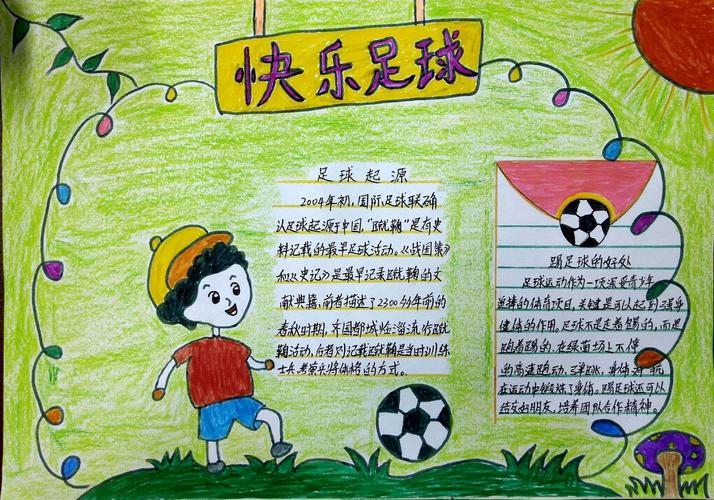 快乐足球
足球起源
2004年初，国际足球联确
认足球起源于中国，“蹴鞠”是有史
料记载的最早足球活动。《战国策》
和《史记》是最早记录蹴鞠的文
献典籍，前者描述了2300多年前的
春秋时期，齐国都城临淄流行蹴
鞠活动，后者则记载蹴鞠是当时训练
士兵、考察兵将体格的方式。
踢足球的好处
足球运动作为一项深受青少年
追捧的体育项目，关键是可以起到强身
健体的作用。足球不是走着踢的，而是
跑着踢的，在绿茵场上不停
的高速跑动、弹跳，身体对抗
在运动中锻炼了身体。踢足球还可以
结交好朋友，培养团队合作精神。